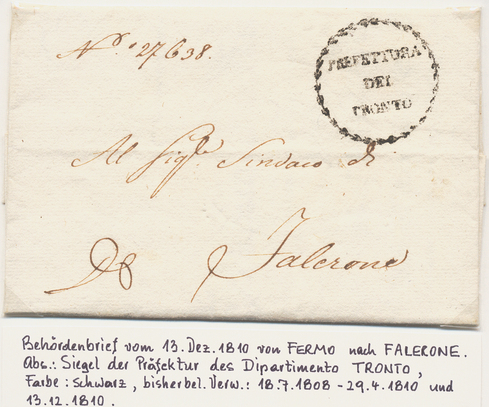 Nº. 27638.
PREFETTURA
DEL
TRONTO
Al Sigr Sindaco di
Falerone
Behördenbrief vom 13. Dez. 1810 von FERMO nach FALERONE.
Abs.: Siegel der Präfektur des Dipartimento TRONTO,
Farbe: schwarz, bisher bel. Verw.: 18.7.1808 - 29.4.1810 und
13.12.1810.